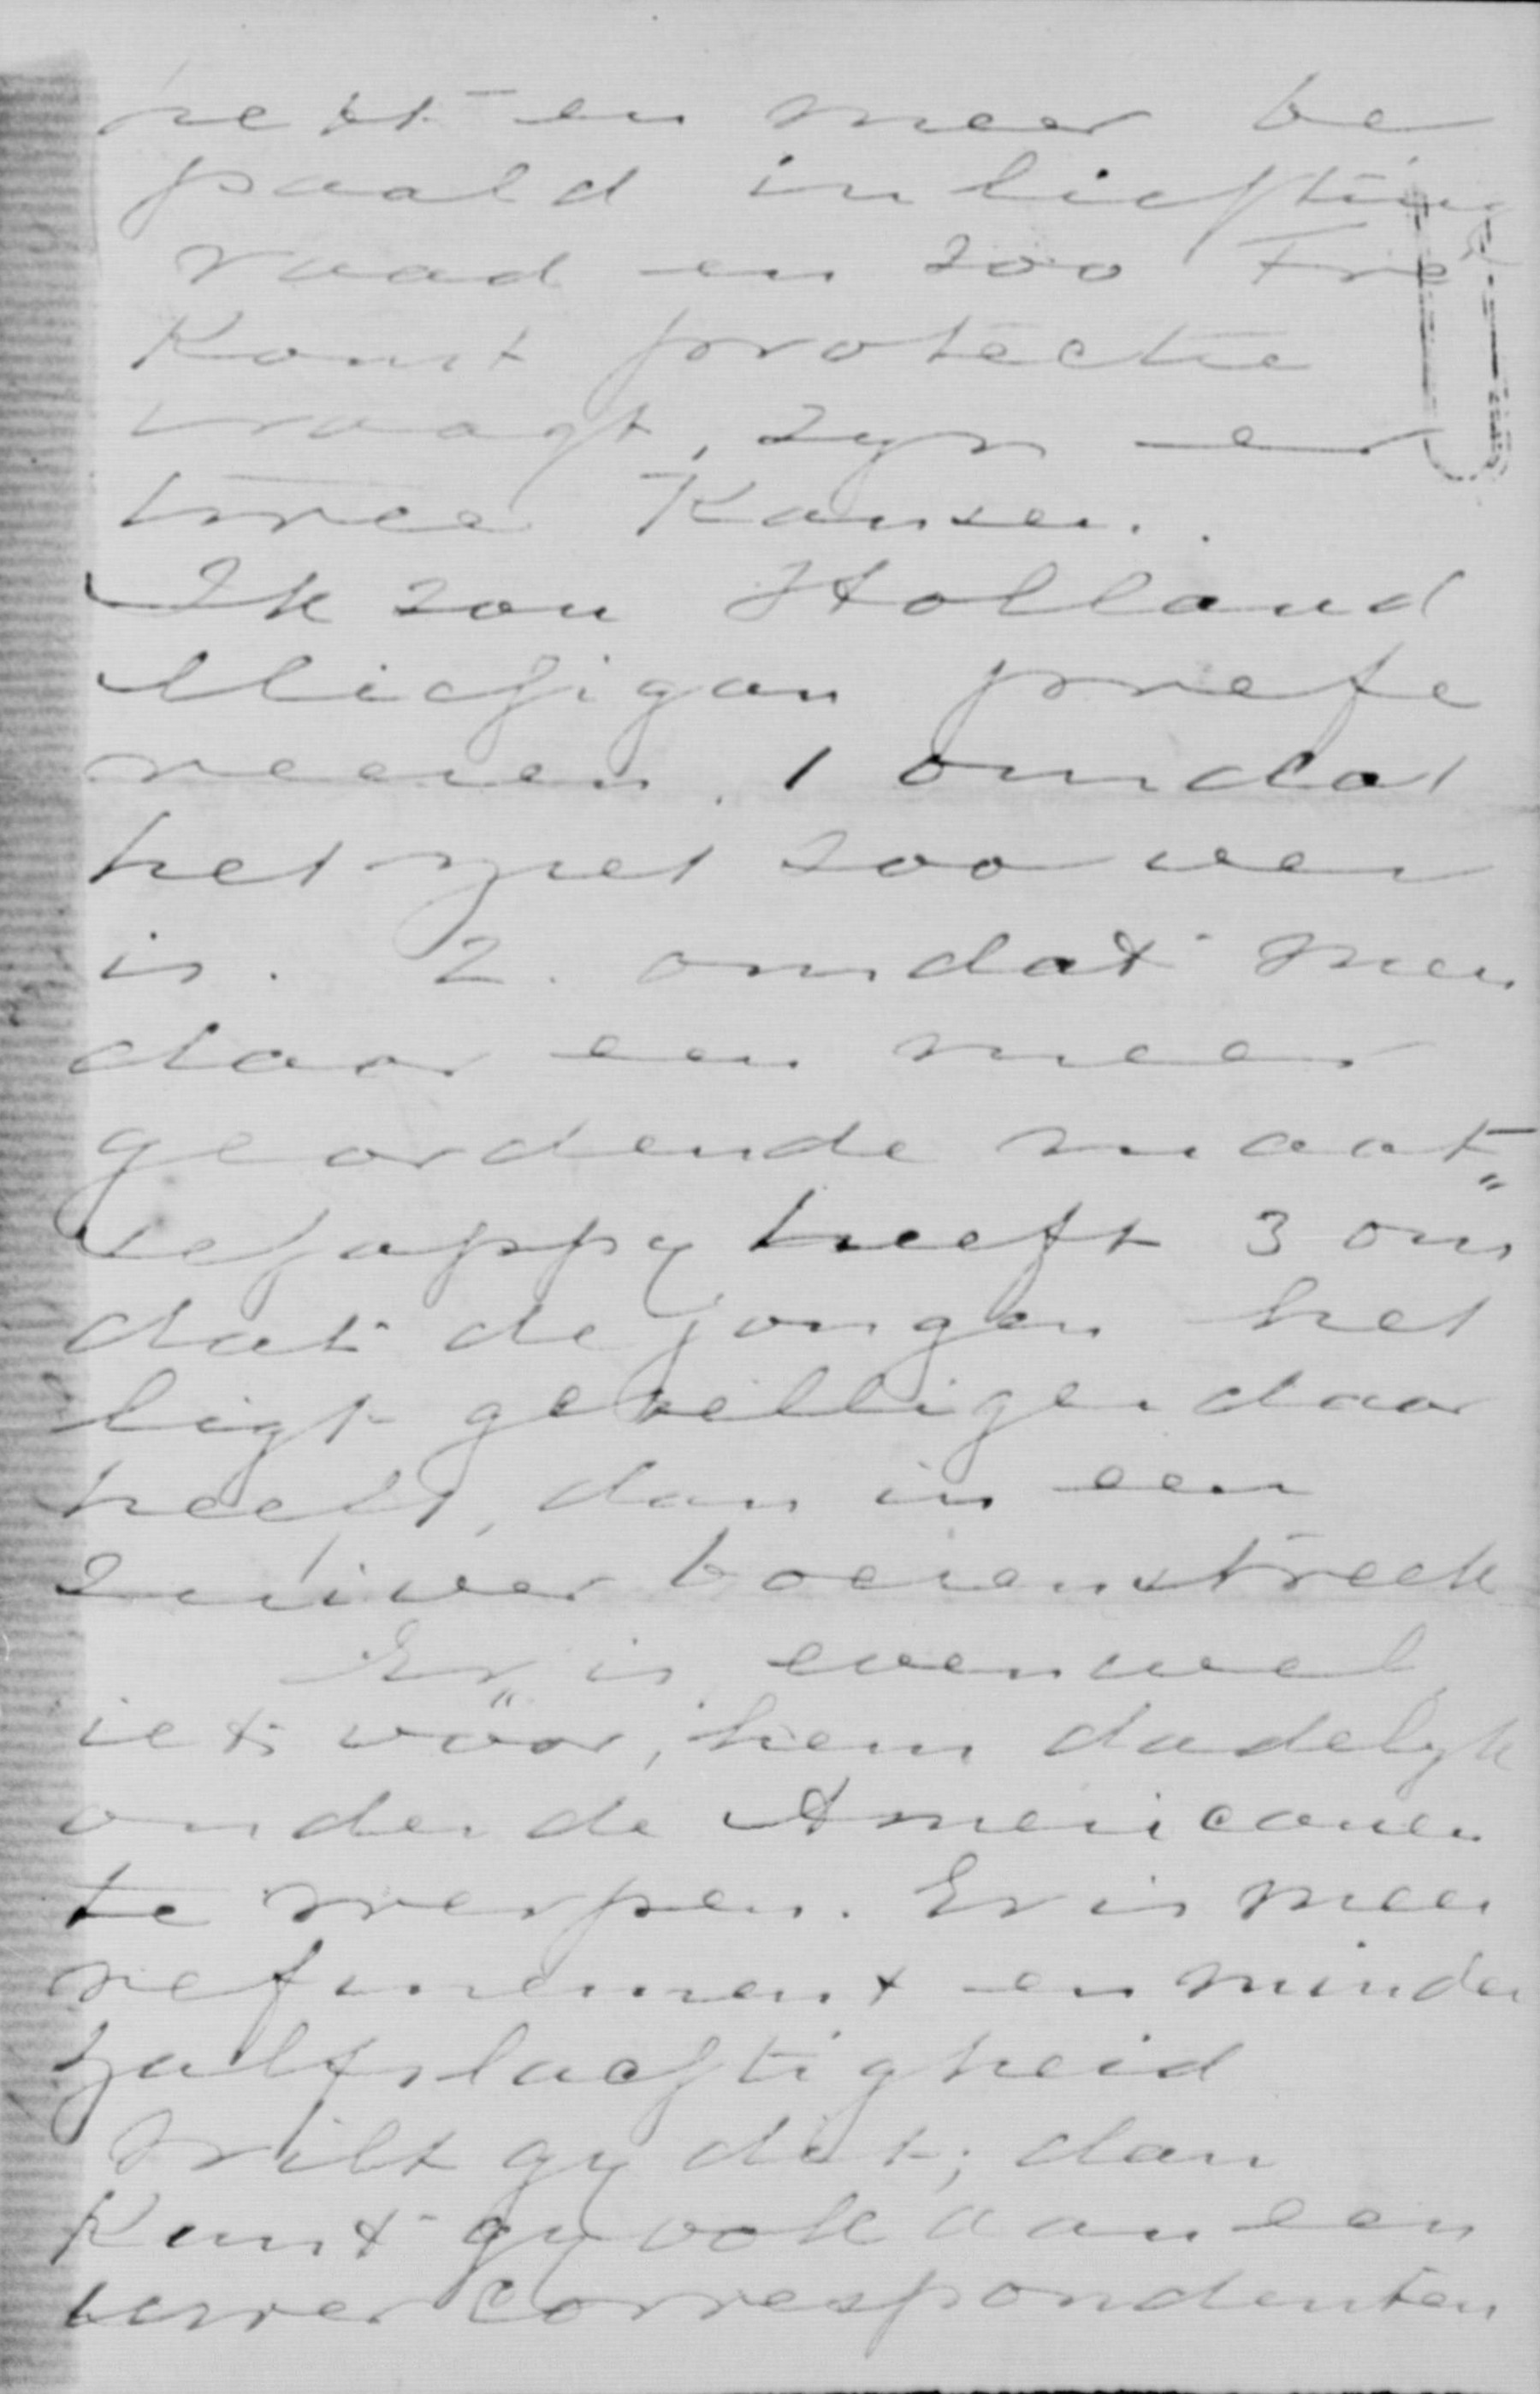 rekt en meer be
paald inlichting
raad en zoo Fre
Komt protectie
vraagt, zyn er
twee Kansen.
Ik zou Holland
Michigan prefe
reeren. 1 omdat
het niet zoo ver
is. 2. omdat men
daar een meer
geordende maat"
schappy heeft 3 om
dat de jongen het
ligt gezelliger daar
heeft, dan in een
zuiver boerenstreek
Er is evenwel
iets vöor, hem dadelyk
onder de Americanen
te werpen. Er is meer
refinement en minder
halfslachtigheid
Wilt gy dit; dan
Kunt gy ook aan een
uwer correspondenten